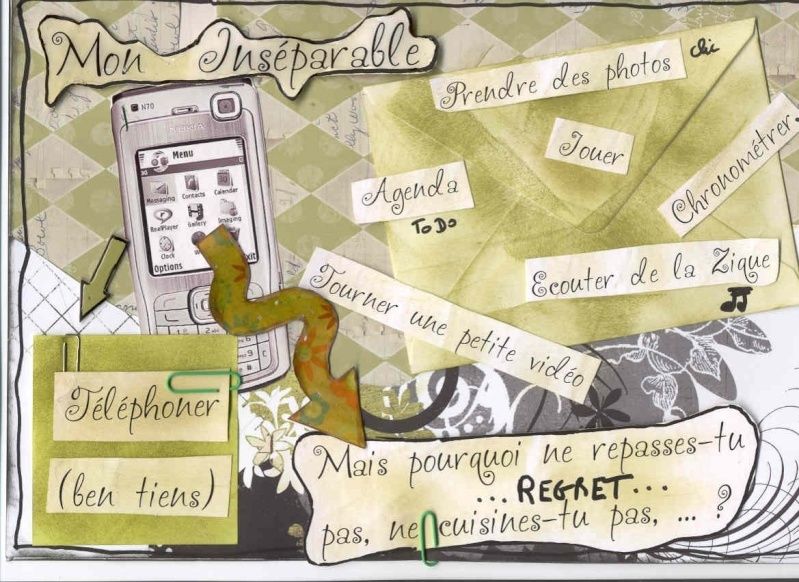 Mon Inséparable
Prendre des photos clic
Jouer
Chronométrer.
Agenda
TO DO
Ecouter de la Zique
Tourner une petite vidéo
N70
NOKIA
Menu
Messaging Contacts Calendar
RealPlayer Gallery Imaging
Clock
Options Exit
Téléphoner
(ben tiens)
Mais pourquoi ne repasses-tu
...REGRET...
pas, ne cuisines-tu pas, ... ?